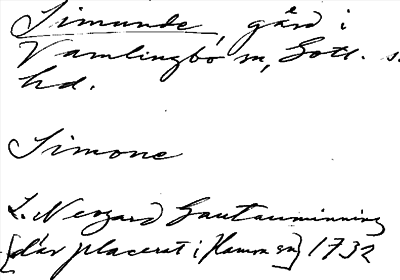 Simunde, gård i
Vamlingbo sn, Gotl. s.
hd.
Simone
L. Neogard Gautauminning
[där placerat i Hamra sn] 1732